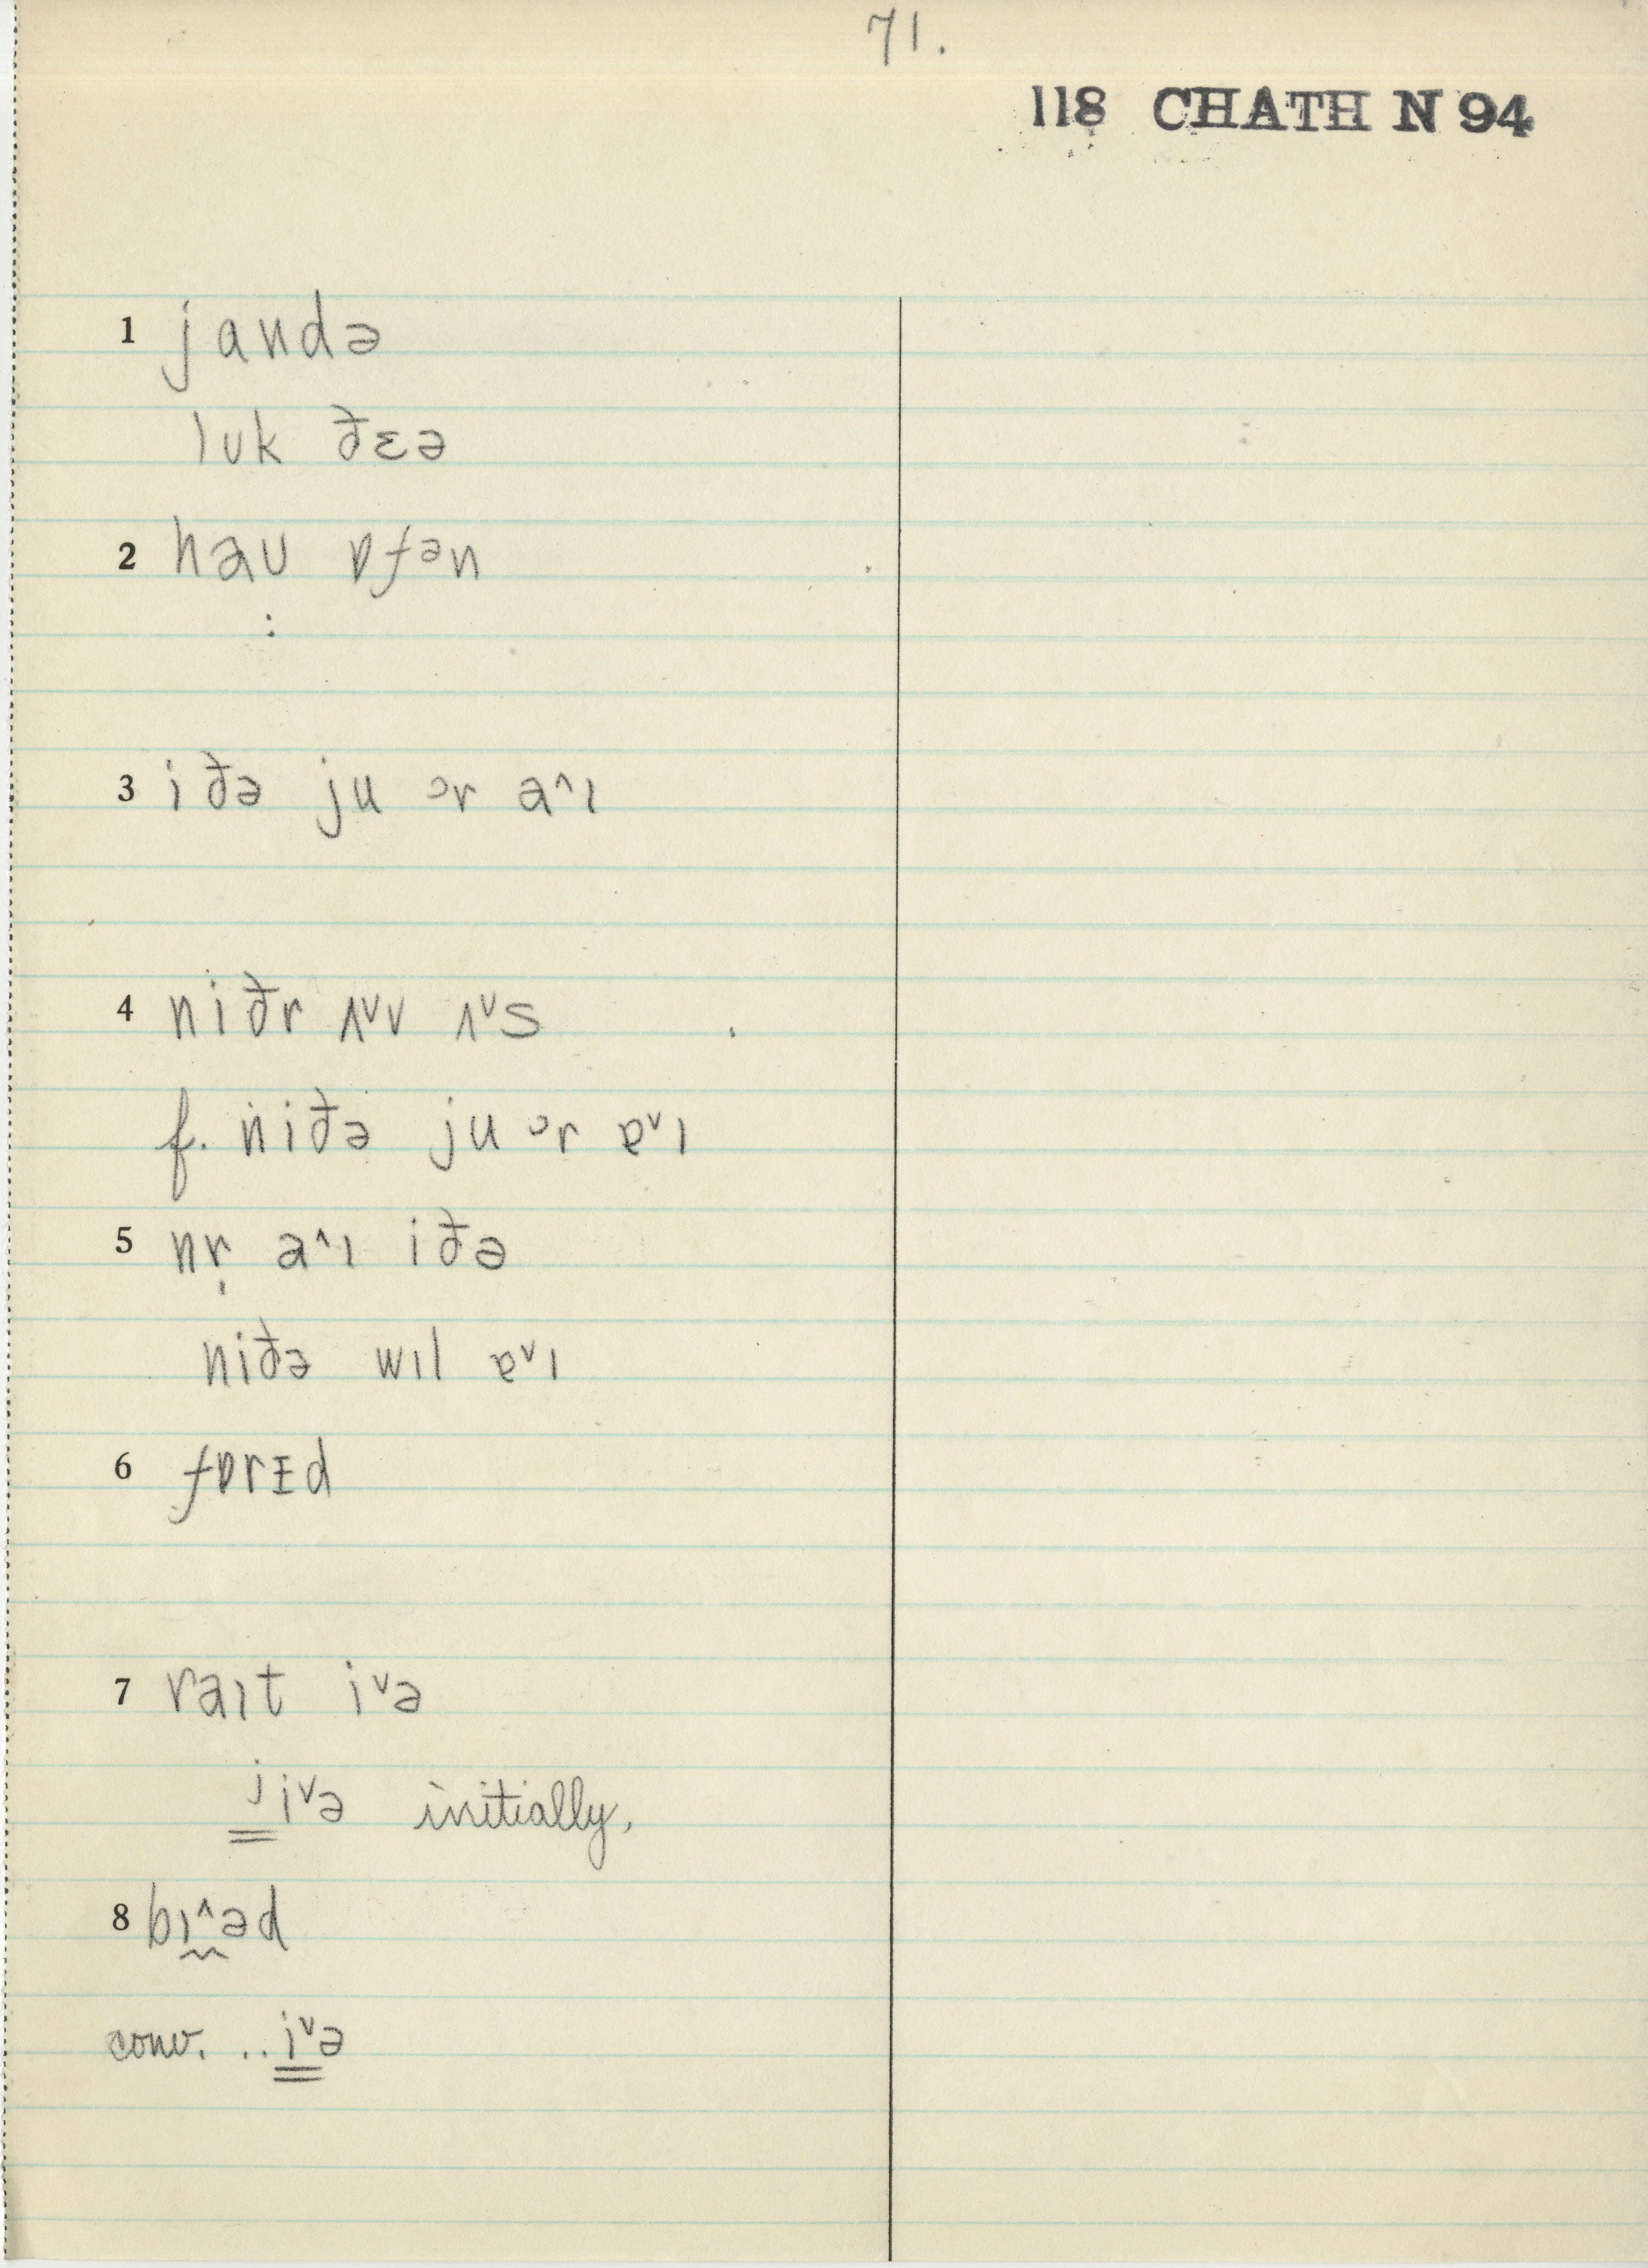 71.
118 CHATH N 94
1 jandə
lʊk ðɛə
2 haʊ ɒfən
3 iðə ju ɔr a^ɪ
4 niðr ʌ˅v ʌ˅s
f. niðə ju ɔr ɐ˅ɪ
5 nr̩ a^ɪ iðə
niðə wɪl ɐ˅ɪ
6 fɒrɪd
7 raɪt i˅ə
ʲi˅ə initially,
8 bɪ^əd
conv. .. i˅ə